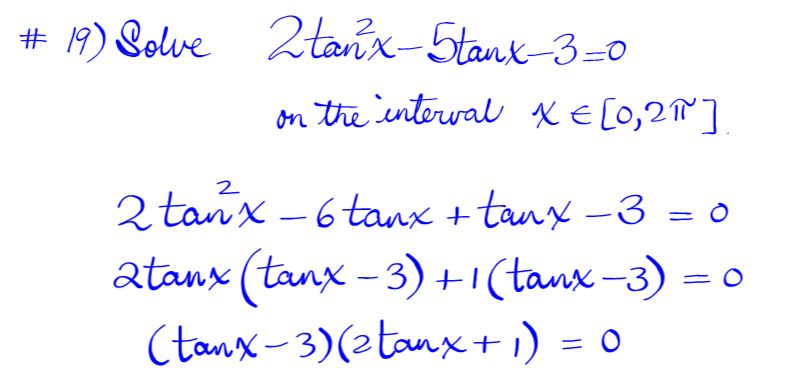 # 19) Solve 2tan²x-5tanx-3=0
on the interval x ∈ [0,2π].
2tan²x - 6tanx + tanx - 3 = 0
2tanx(tanx - 3) + 1(tanx - 3) = 0
(tanx - 3)(2tanx + 1) = 0